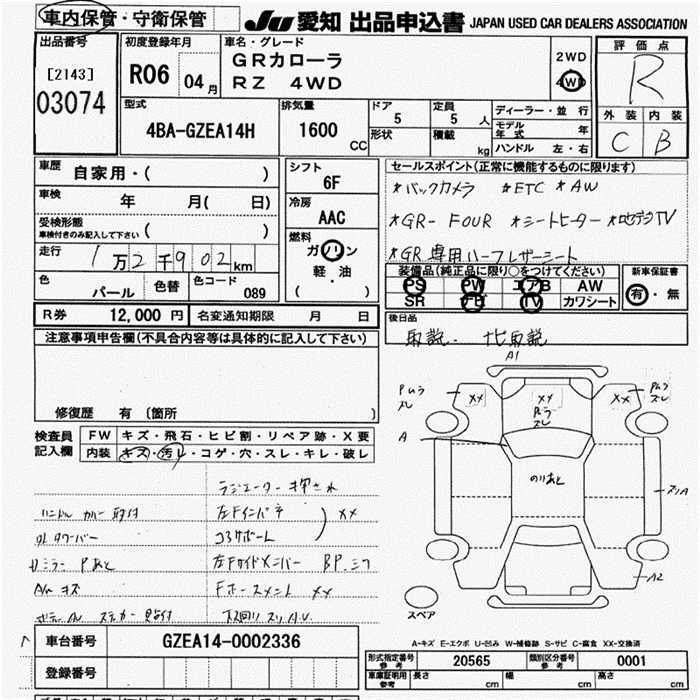 車内保管・守衛保管
JU 愛知 出品申込書 JAPAN USED CAR DEALERS ASSOCIATION
出品番号
[2143]
03074
初度登録年月
R06 04月
車名・グレード
GRカローラ
RZ 4WD
2WD
4WD
評価点
R
外装 内装
C B
型式
4BA-GZEA14H
排気量
1600
CC
ドア
5
形状
定員
5 人
積載
kg
ディーラー・並行
モデル年式 年
ハンドル 左・右
車歴
自家用・( )
車検
年 月( 日)
受検形態
車検付きのみ記入して下さい ( )
走行
1万2千902km
色
パール
色替
色コード
089
シフト
6F
冷房
AAC
燃料
ガソリン
軽・油
( )
セールスポイント(正常に機能するものに限ります)
*バックカメラ *ETC *AW
*GR-FOUR *シートヒーター *地デジTV
*GR専用ハーフレザーシート
装備品(純正品に限り○をつけてください)
PS PW エアB AW
SR ナビ TV カワシート
新車保証書
有・無
R券 12,000円 名変通知期限 月 日
後日品
取説・ナビ取説
注意事項申告欄(不具合内容等は具体的に記入して下さい)
修復歴 有 (箇所 )
検査員記入欄
FW キズ・飛石・ヒビ割・リペア跡・X要
内装 キズ・汚レ・コゲ・穴・スレ・キレ・破レ
ラジエーター押され
ハンドルカバー取付
左Fインパネ
XX
コアサポート
Pあと
左Fサイドメンバー
Fホースメント XX
AW キズ
A1
Pムラ
スレ
XX
XX
Pムラ
スレ
XX
Pムラ
スレ
A
のりあと
A2
スペア
車台番号 GZEA14-0002336
登録番号
A-キズ E-エクボ U-凹み W-補修跡 S-サビ C-腐食 XX-交換済
形式指定番号
参考
20565
類別区分番号
参考
0001
車庫証明用
参考
長さ cm 幅 cm 高さ cm